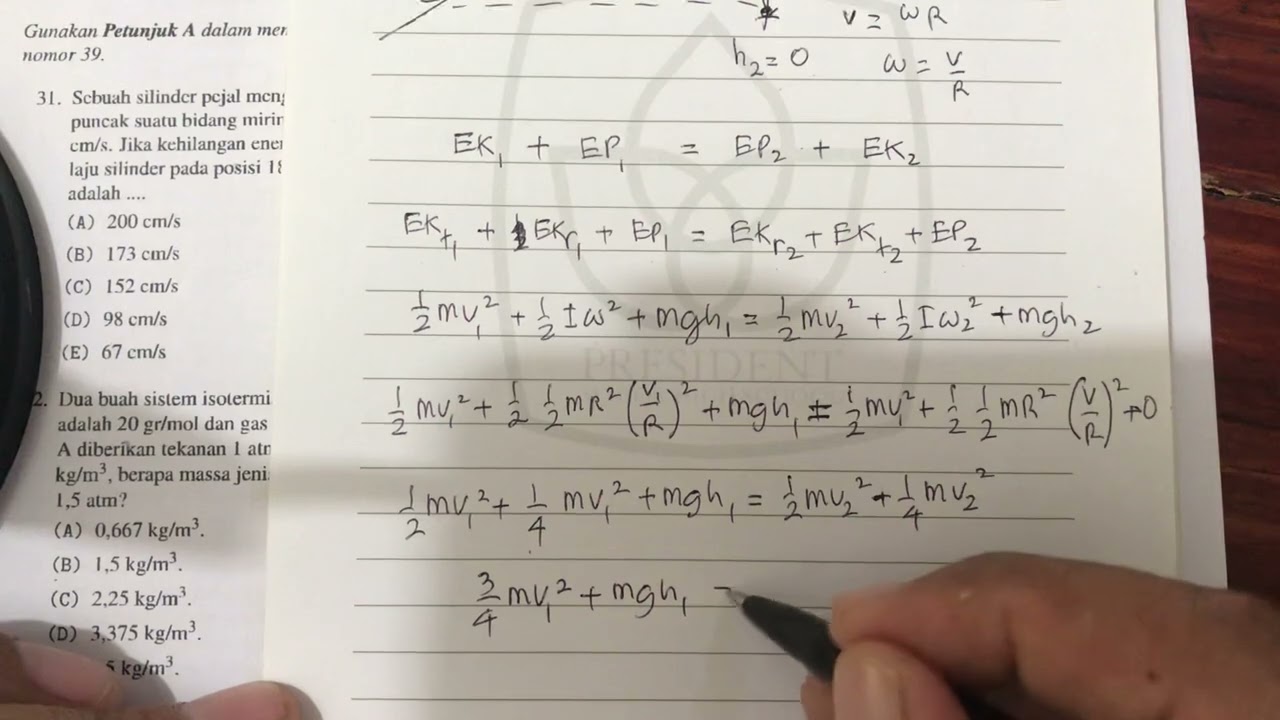 Gunakan Petunjuk A dalam
nomor 39.
31. Sebuah silinder pejal
puncak suatu bidang
cm/s. Jika kehilangan
laju silinder pada posisi
adalah ....
(A) 200 cm/s
(B) 173 cm/s
(C) 152 cm/s
(D) 98 cm/s
(E) 67 cm/s
2. Dua buah sistem isotermi
adalah 20 gr/mol dan gas
A diberikan tekanan 1
kg/m³, berapa massa
1,5 atm?
(A) 0,667 kg/m³.
(B) 1,5 kg/m³.
(C) 2,25 kg/m³.
(D) 3,375 kg/m³.
5 kg/m³.
v = ωR
h₂ = 0 ω = v/R
EK₁ + EP₁ = EP₂ + EK₂
EKt₁ + EKr₁ + EP₁ = EKr₂ + EKt₂ + EP₂
½mv₁² + ½Iω² + mgh₁ = ½mv₂² + ½Iω₂² + mgh₂
½mv₁² + ½ ½mR²(v₁/R)² + mgh₁ = ½mv² + ½ ½mR²(v/R)² + 0
½mv₁² + ¼mv₁² + mgh₁ = ½mv₂² + ¼mv₂²
¾mv₁² + mgh₁
PRESIDENT